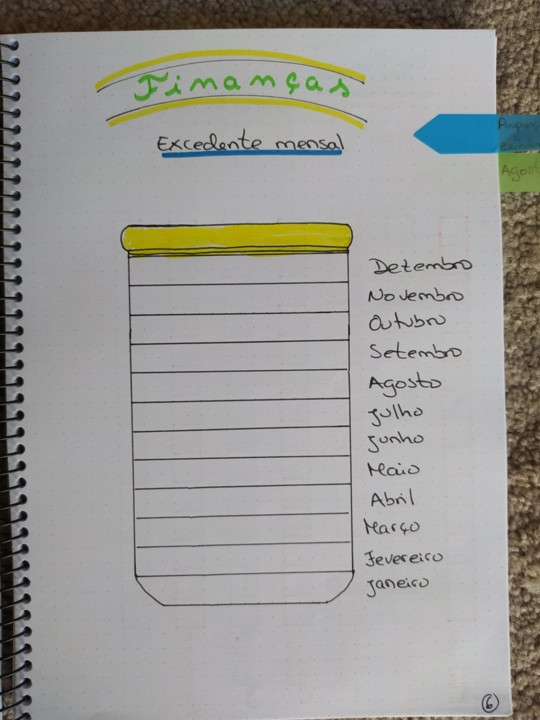 Finanças
Excedente mensal
Agost
Dezembro
Novembro
Outubro
Setembro
Agosto
Julho
Junho
Maio
Abril
Março
Fevereiro
Janeiro
6